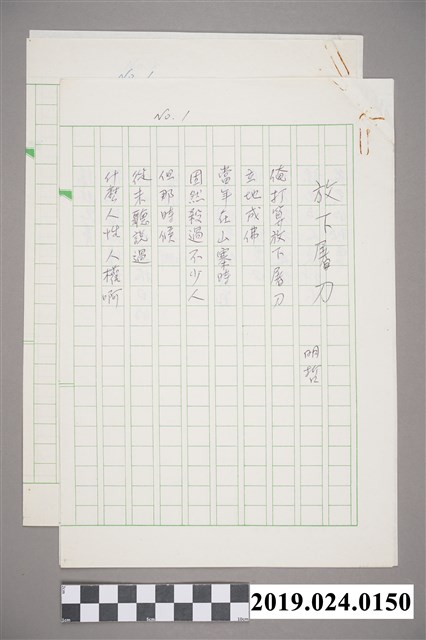 No. 1
No. 1
放下屠刀
明哲
俺打算放下屠刀
立地成佛
當年在山寨時
固然殺過不少人
但那時候
從未聽說過
什麼人性人權啊
2019.024.0150